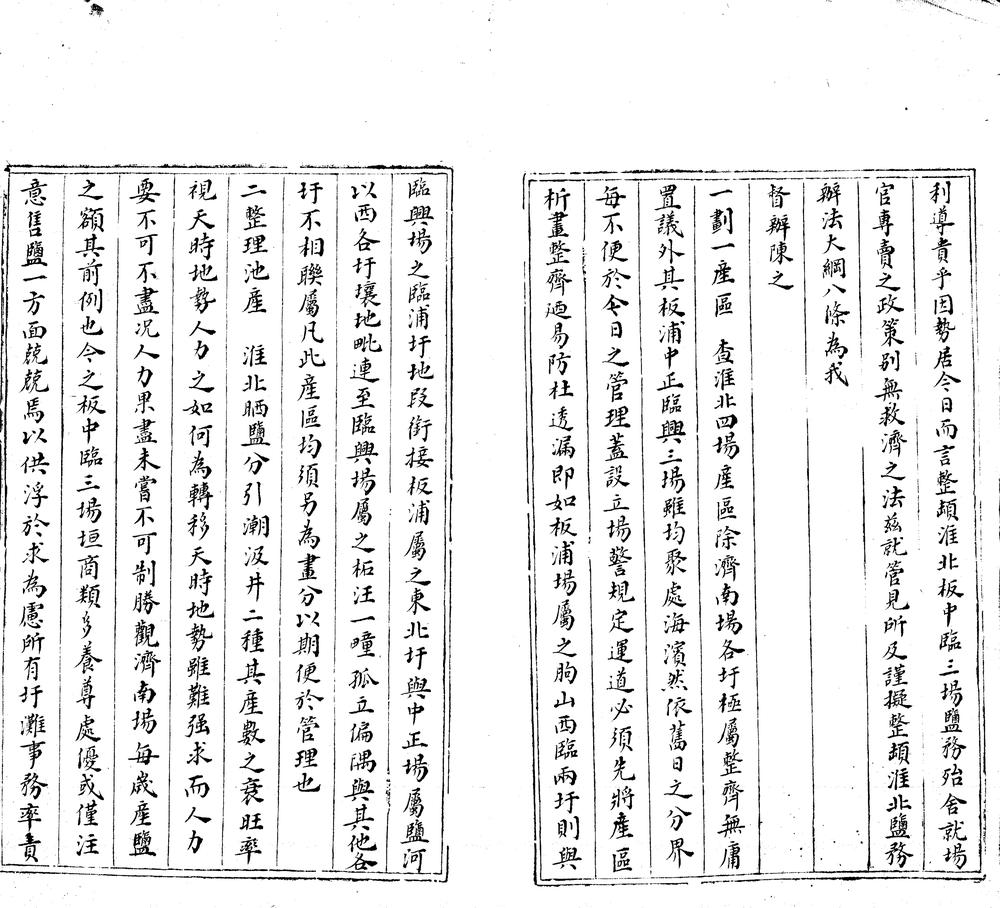 利導貴乎因勢居今日而言整頓淮北板中臨三場鹽務殆舍就場
官專賣之政策別無救濟之法茲就管見所及謹擬整頓淮北鹽務
辦法大綱八條為我
督辦陳之
一劃一產區　查淮北四場產區除濟南場各圩極屬整齊無庸
置議外其板浦中正臨興三場雖均聚處海濱然依舊日之分界
每不便於今日之管理蓋設立場警規定運道必須先將產區
析畫整齊迺易防杜透漏即如板浦場屬之朐山西臨兩圩則與
臨興場之臨浦圩地段銜接板浦屬之東北圩與中正場屬鹽河
以西各圩壤地毗連至臨興場屬之柘汪一疃孤立偏隅與其他各
圩不相聯屬凡此產區均須另為畫分以期便於管理也
二整理池產　淮北晒鹽分引潮汲井二種其產數之衰旺率
視天時地勢人力之如何為轉移天時地勢雖難强求而人力
要不可不盡况人力果盡未嘗不可制勝觀濟南場每歲產鹽
之額其前例也今之板中臨三場垣商類多養尊處優或僅注
意售鹽一方面兢兢焉以供浮於求為慮所有圩灘事務率責